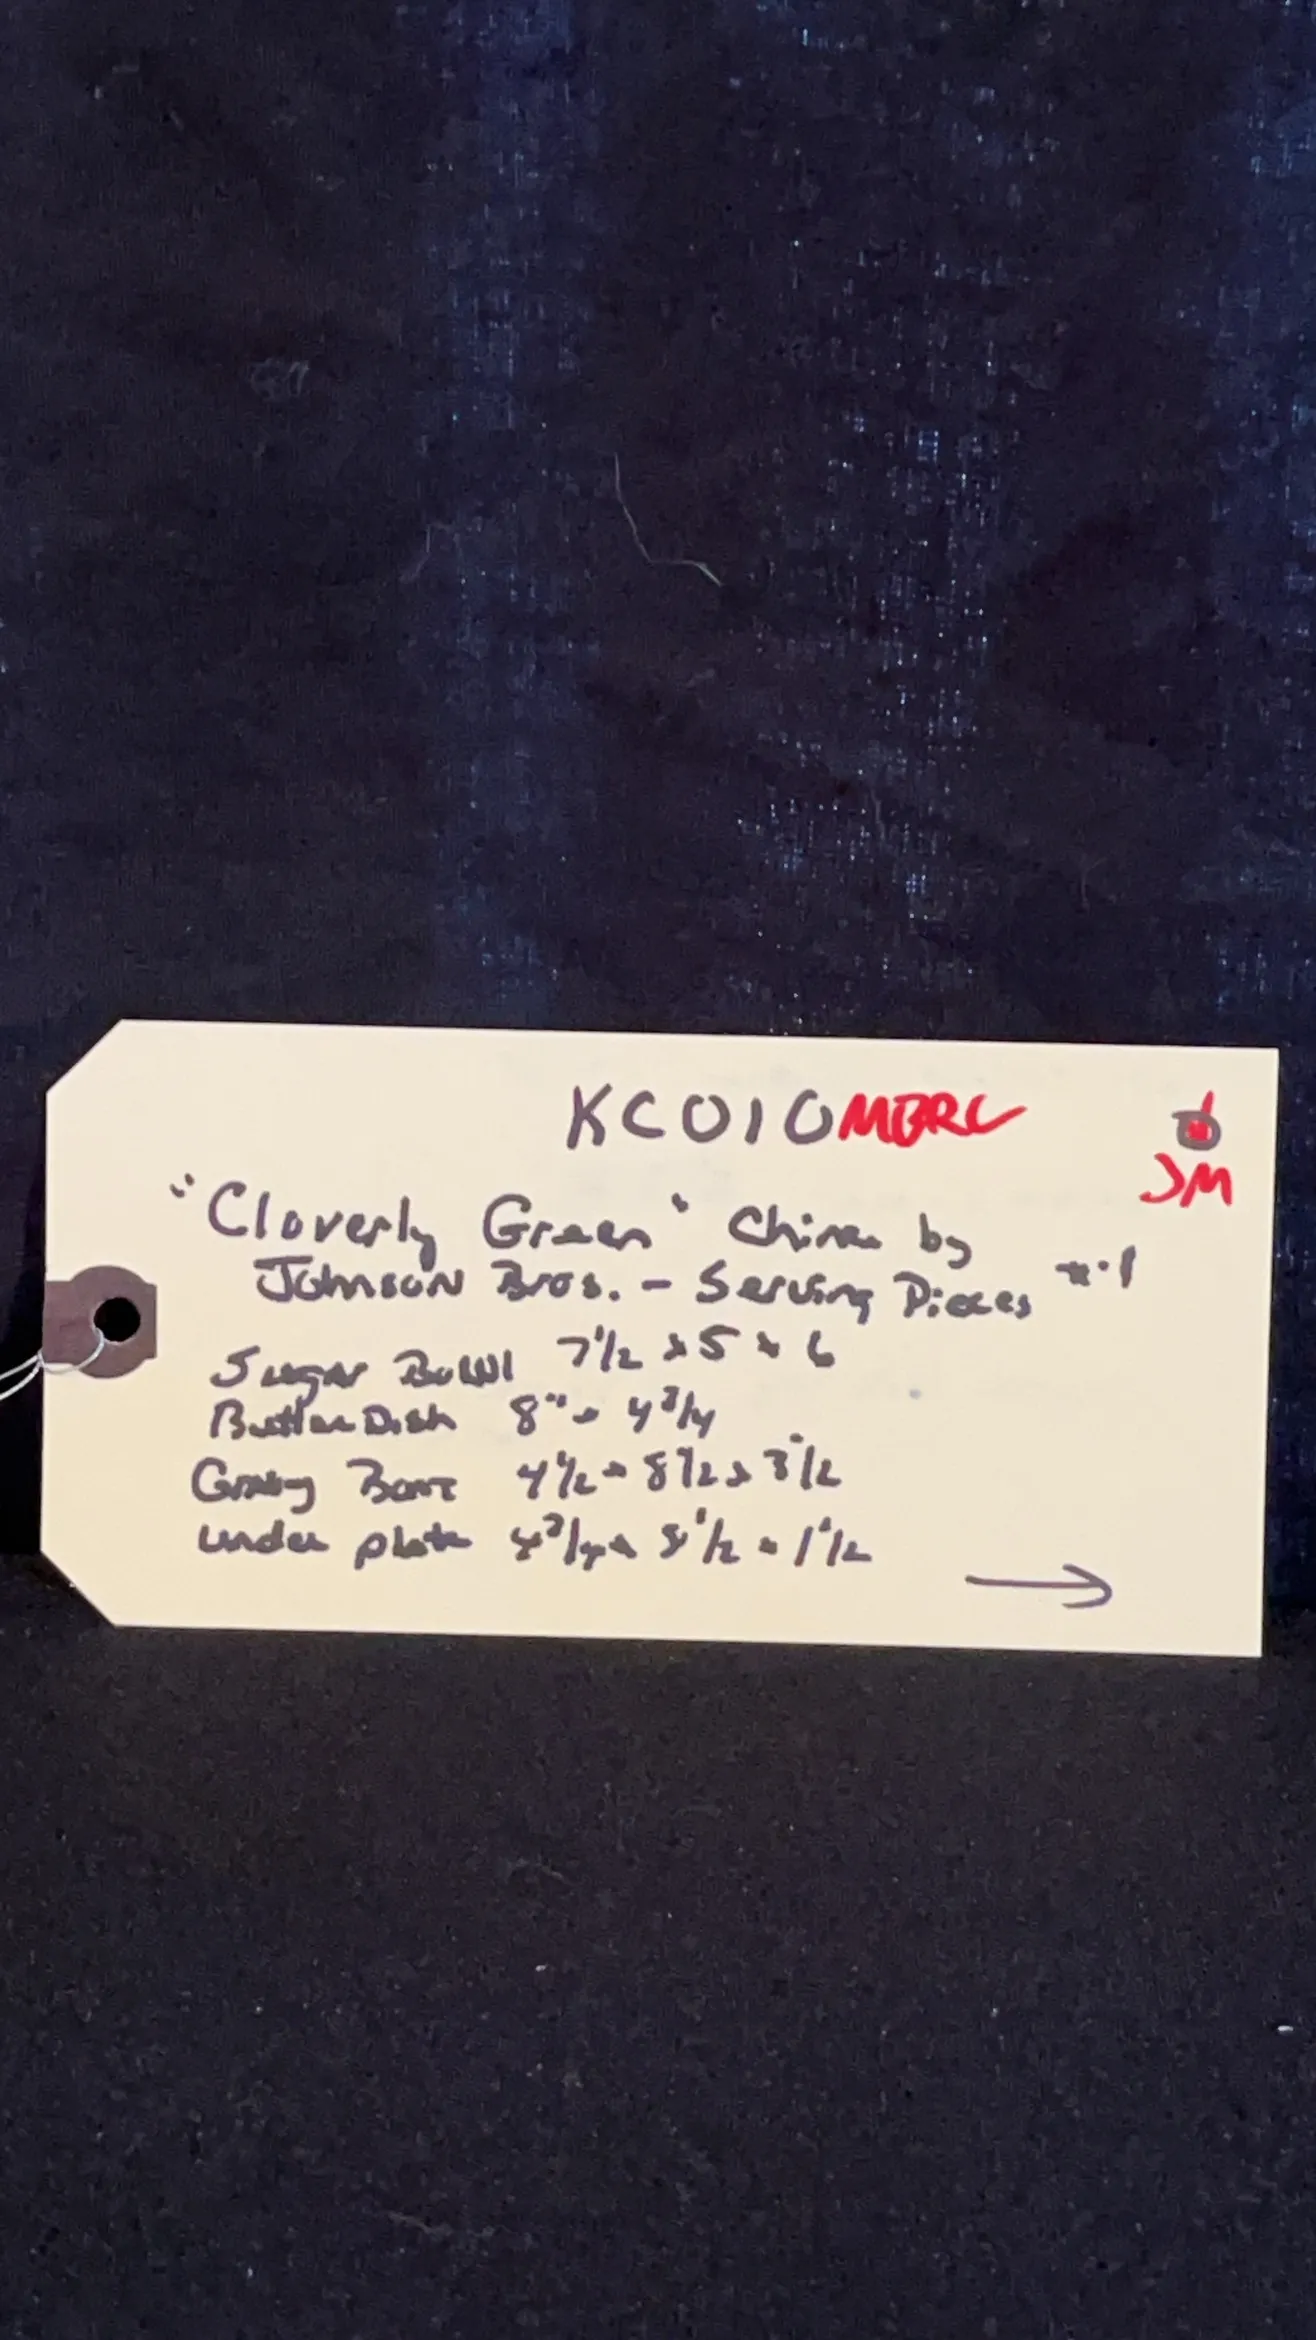 KC010MBRC
JM
"Cloverly Green" China by
Johnson Bros. - Serving Pieces #1
Sugar Bowl 7 1/2 x 5 x 6
Butter Dish 8" x 4 3/4
Gravy Boat 4 1/2 x 8 1/2 x 3 1/2
under plate 4 3/4 x 8 1/2 x 1 1/2
→